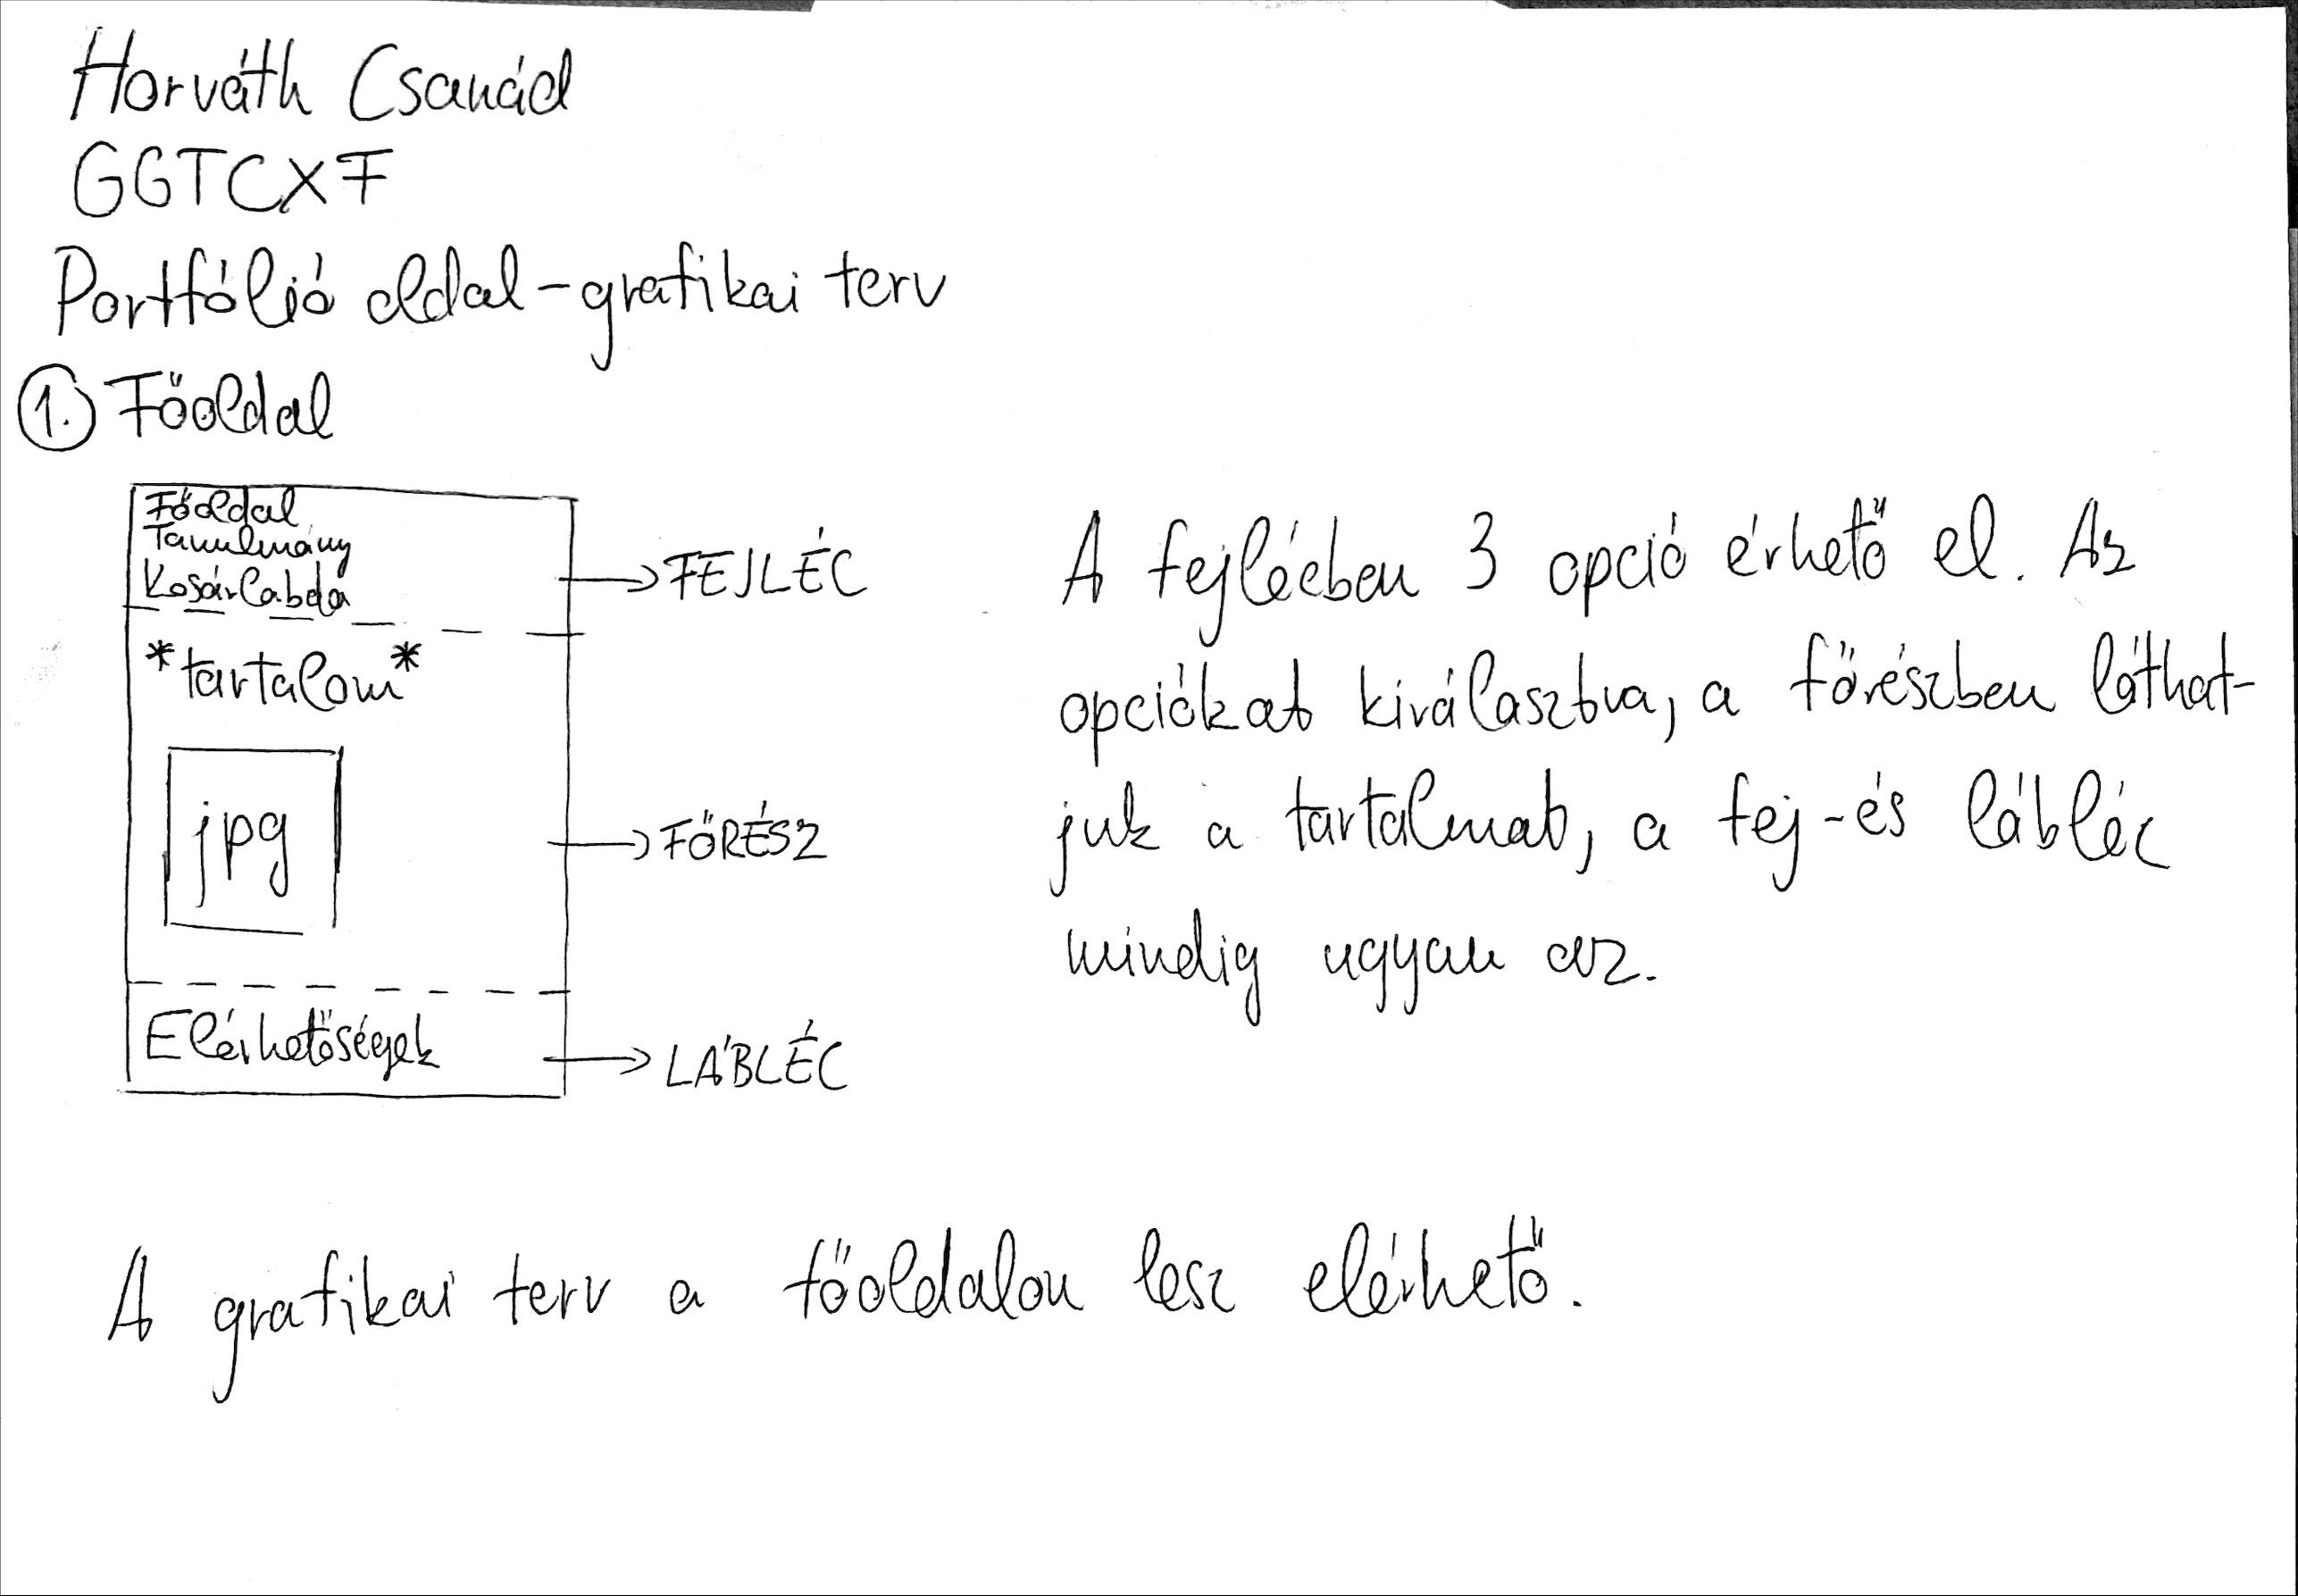 Horváth Csanád
GGTCXF
Portfólió oldal-grafikai terv
1. Főoldal
Főoldal
Tanulmány
Kosárlabda
→FEJLÉC
*tartalom*
jpg
→FŐRÉSZ
Elérhetőségek
→LÁBLÉC
A fejlécben 3 opció érhető el. Az
opciókat kiválasztva, a főrészben láthat-
juk a tartalmat, a fej-és lábléc
mindig ugyan az.
A grafikai terv a főoldalon lesz elérhető.